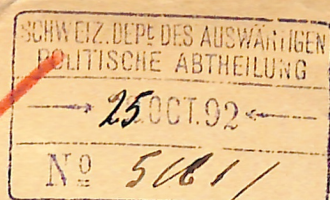 SCHWEIZ. DEPT DES AUSWÄRTIGEN
POLITISCHE ABTHEILUNG
25 OCT. 92
Nº